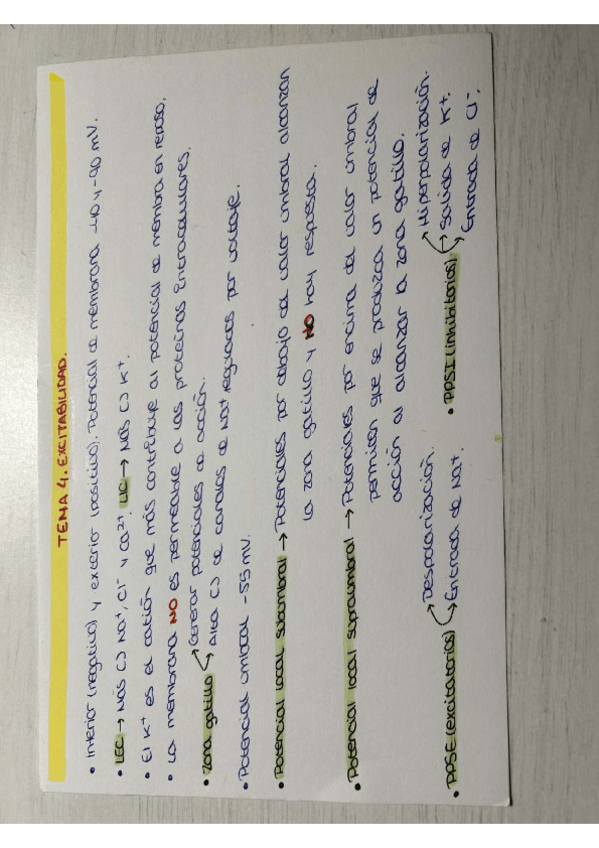 TEMA 4. EXCITABILIDAD.
• Interior (negativo) y exterior (positivo). Potencial de membrana -40 y -90 mV.
• LEC → Más [] Na⁺, Cl⁻ y Ca²⁺. LIC → Más [] K⁺.
• El K⁺ es el catión que más contribuye al potencial de membrana en reposo.
• La membrana NO es permeable a las proteínas intracelulares.
• Zona gatillo → Generar potenciales de acción.
→ Alta [] de canales de Na⁺ regulados por voltaje.
• Potencial umbral -55 mV.
• Potencial local subumbral → Potenciales por debajo del valor umbral alcanzan
la zona gatillo y NO hay respuesta.
• Potencial local supraumbral → Potenciales por encima del valor umbral
permiten que se produzca un potencial de
acción al alcanzar la zona gatillo.
• PPSE (excitatorios) → Despolarización.
→ Entrada de Na⁺.
• PPSI (inhibitorios) → Hiperpolarización.
→ Salida de K⁺.
→ Entrada de Cl⁻.